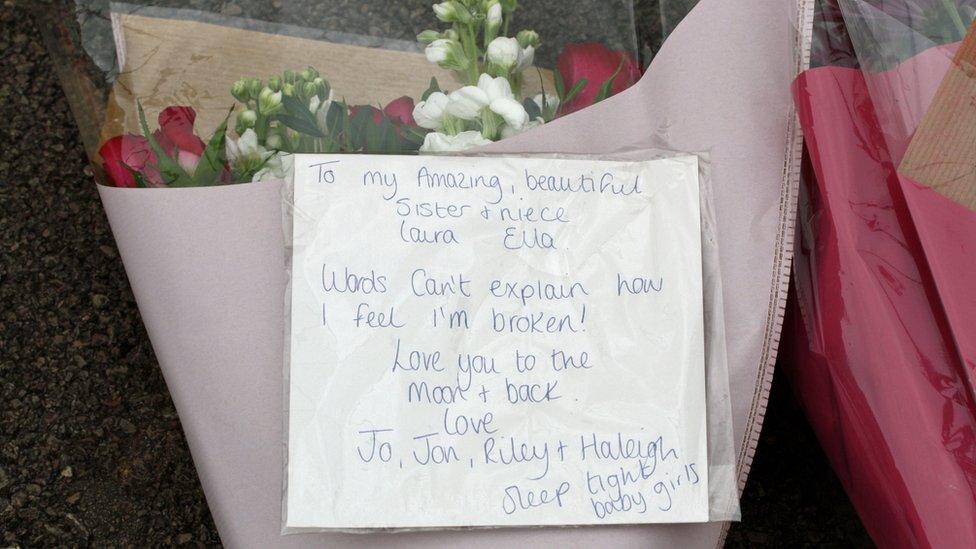 To my Amazing, beautiful
Sister + niece
Laura Ella.
Words Can't explain how
I feel I'm broken!
Love you to the
Moon + back.
Love
Jo, Jon, Riley + Haleigh
Sleep tight
baby girls